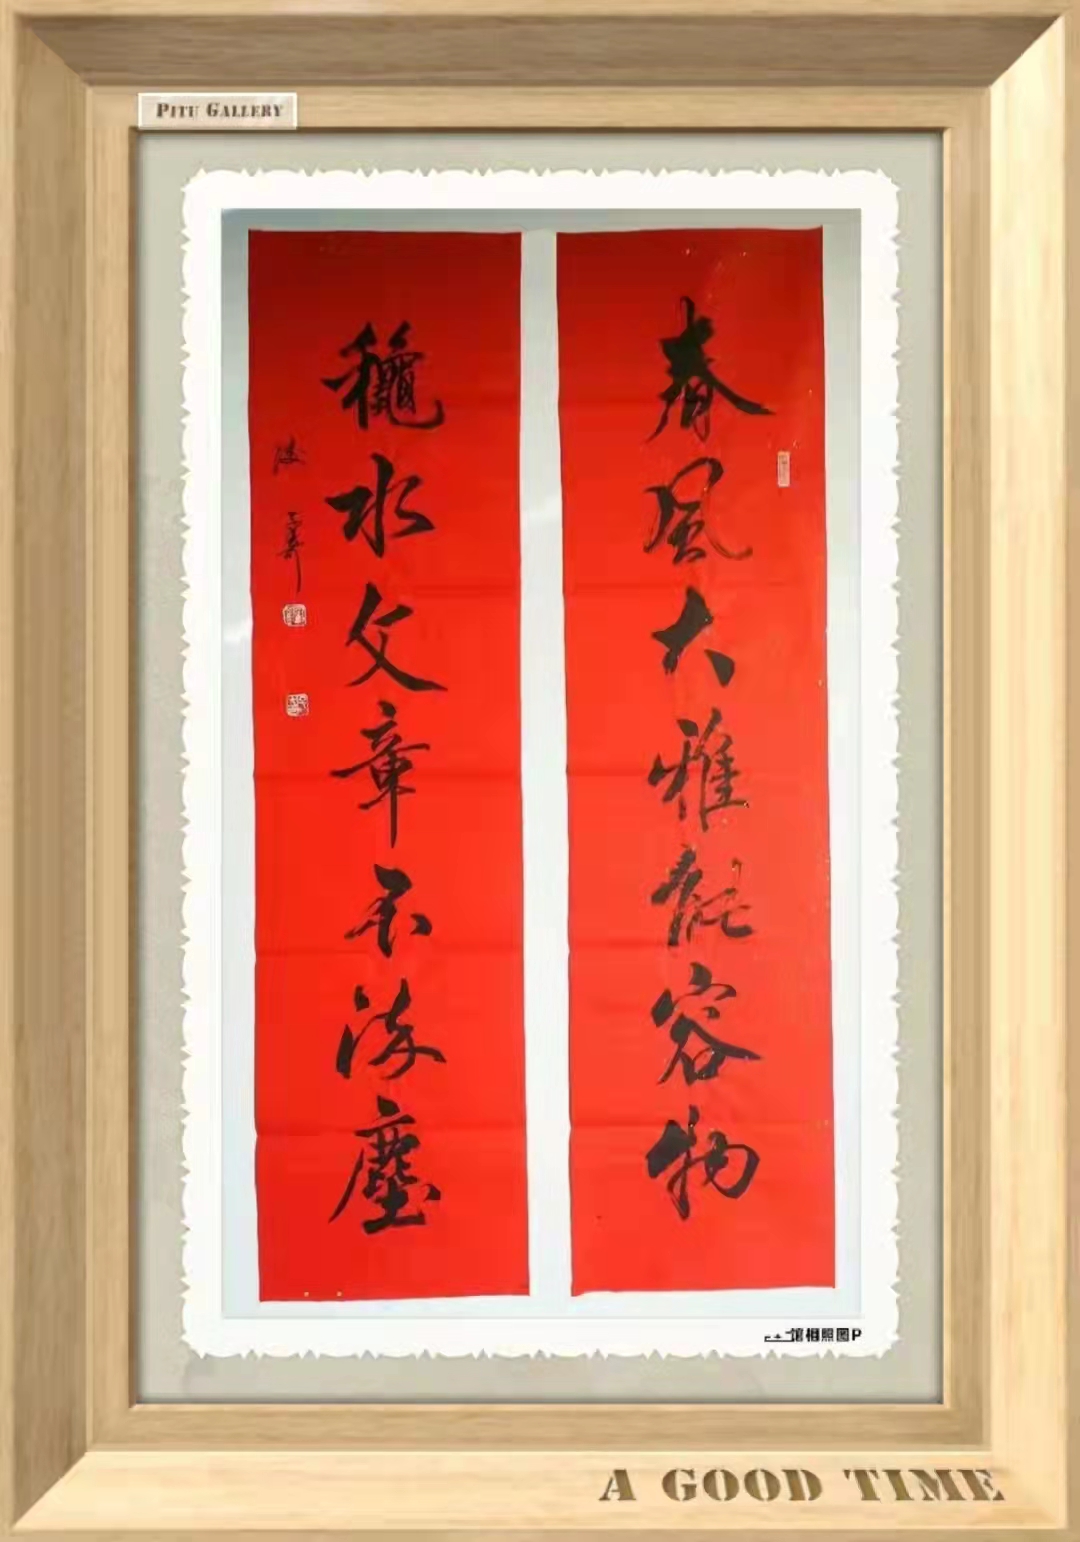 PITU GALLERY
春风大雅能容物
龝水文章不染塵
P圖照相馆
A GOOD TIME